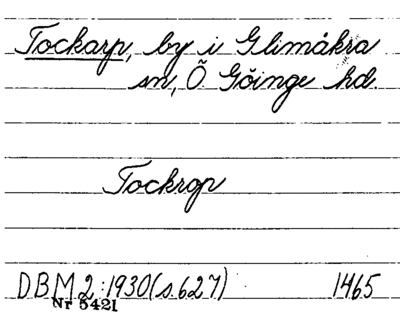 Tockarp, by i Glimåkra
sn, Ö Göinge hd.
Tockrop
DBM 2:1930 (s. 627) 1465
Nr 5421